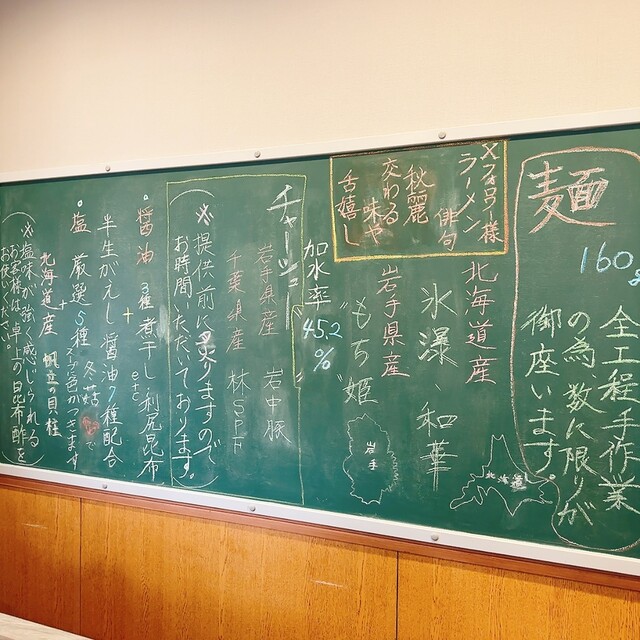 麺
160g
全工程手作業
の為数に限りが
御座います。
Xフォロワー様
ラーメン俳句
秋麗
交わる味や
舌嬉し
北海道産
氷瀑、和華
岩手県産
"もち姫"
北海道
岩手
加水率
45.2
%
チャーシュー
岩手県産 岩中豚
千葉県産 林SPF
(※提供前に炙りますので
お時間いただいております。)
・醤油 3種煮干し、利尻昆布etc
+
半生がえし醤油7種配合
・塩 厳選5種 冬菇で
スープ色がつきます
+
北海道産 帆立の貝柱
(※塩味が強く感じられる
お客様は卓上の昆布酢を
お使いください。)